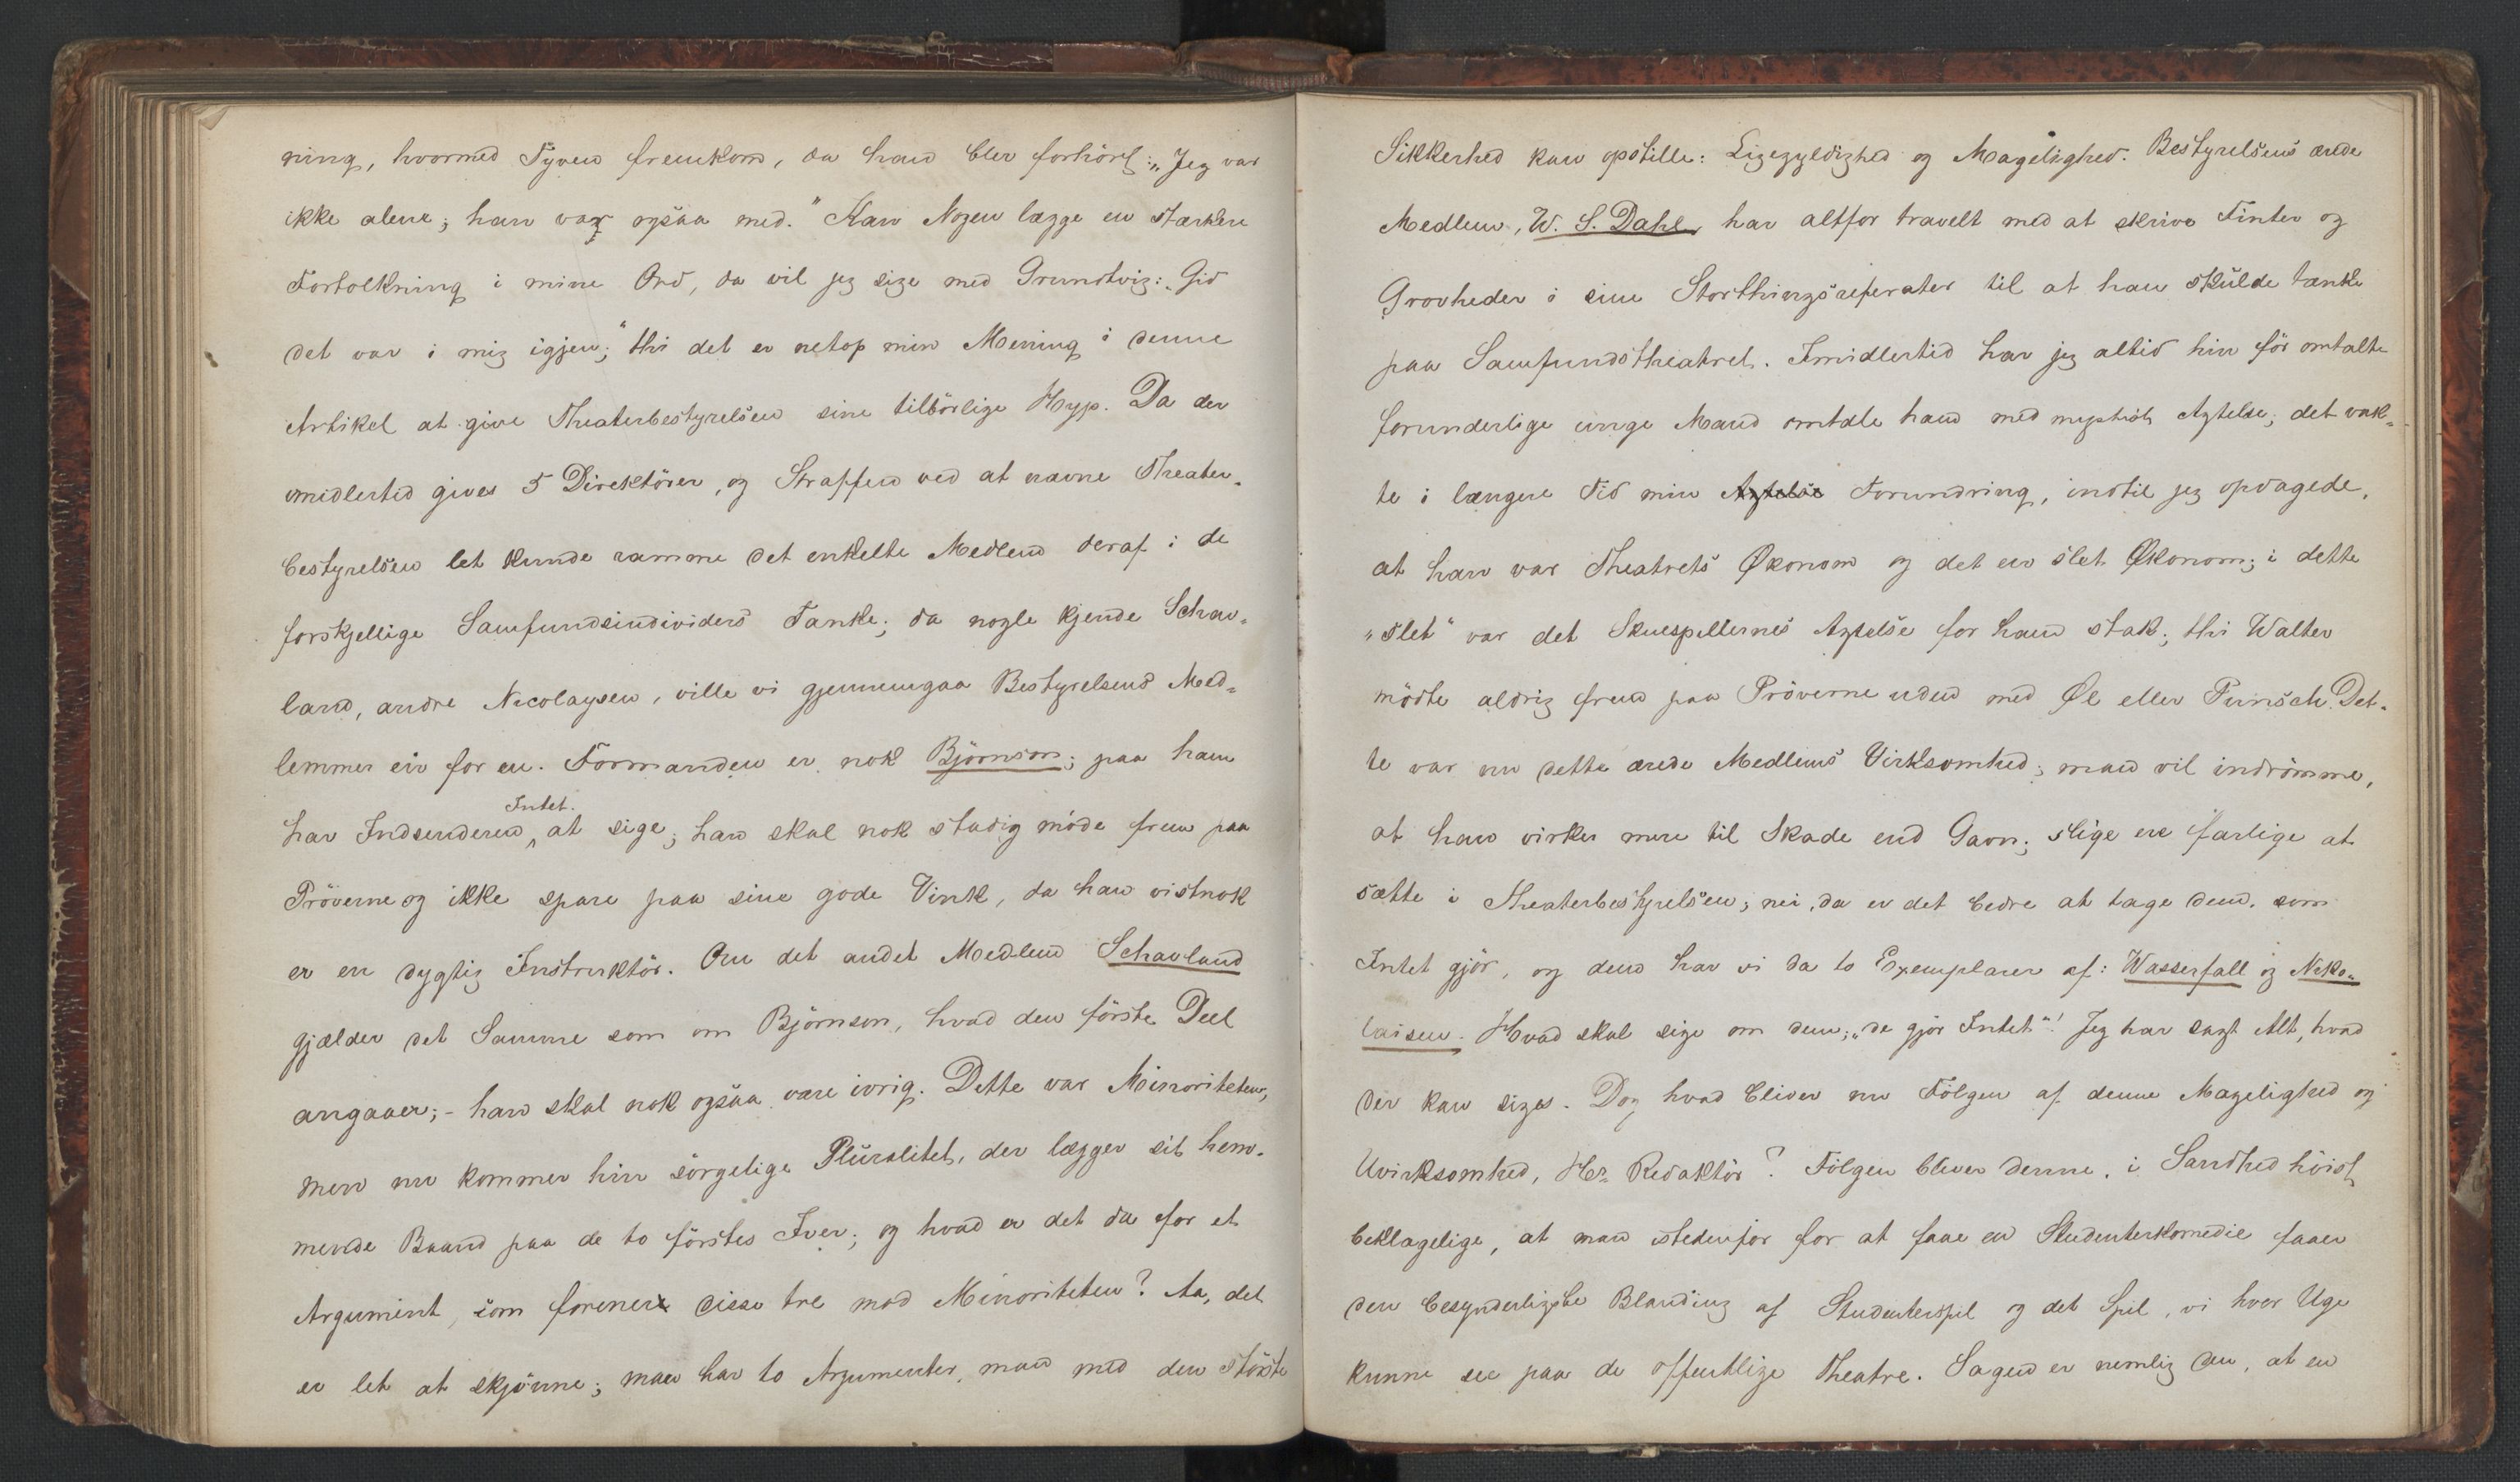 ning, hvormed Tyven fremkom, da han blev forhört: „Jeg var
ikke alene; han var ogsaa med.“ Kan Nogen lægge en stærkere
Fortolkning i mine Ord, da vil jeg sige med Grundtvig: „Gid
det var i mig igjen;“ thi det er netop min Mening i denne
Artikel at give Theaterbestyrelsen sine tilbörlige Hyp. Da der
imidlertid gives 5 Direktörer, og Straffen ved at nævne Theater-
bestyrelsen let kunde ramme det enkelte Medlem deraf i de
forskjellige Samfundsindividers Tanke; da nogle kjende Schav-
land, andre Nicolaysen, ville vi gjennemgaa Bestyrelsens Med-
lemmer en for en. Formanden er nok Björnson; paa ham
har Indsenderen Intet at sige; han skal nok stadig möde frem paa
Pröverne og ikke spare paa sine gode Vink, da han vistnok
er en dygtig Instruktör. Om det andet Medlem Schavland
gjælder det Samme som om Björnson, hvad den förste Deel
angaaer; - han skal nok ogsaa være ivrig. Dette var Minoriteten,
men nu kommer hin sörgelige Pluralitet, der lægger sit hem-
mende Baand paa de to förstes Iver; og hvad er det da for et
Argument, som forener disse tre mod Minoriteten? Aa, det
er let at skjönne; man har to Argumenter, man med den störste
Sikkerhed kan opstille: Ligegyldighed og Magelighed. Bestyrelsens ærede
Medlem, W. S. Dahl, har altfor travelt med at skrive Finter og
Grovheder i sine Storthingsreferater til at han skulde tænke
paa Samfundstheatret. Imidlertid har jeg altid hin för omtalte
forunderlige unge Mand omtale ham med mystisk Agtelse; det vak-
te i længere Tid min Agtelse Forundring, indtil jeg opdagede,
at han var Theatrets Økonom og det en slet Økonom; i dette
„slet“ var det Skuespillernes Agtelse for ham stak; thi Walter
mödte aldrig frem paa Pröverne uden med Øl eller Punsch. Det-
te var nu dette ærede Medlems Virksomhed; man vil indrömme,
at han virker mere til Skade end Gavn; slige ere farlige at
sætte i Theaterbestyrelsen; nei, da er det bedre at tage dem, som
Intet gjör, og dem har vi da to Exemplarer af: Wasserfall og Niko-
laisen. Hvad skal sige om dem; „de gjör Intet“! Jeg har sagt Alt, hvad
der kan siges. Dog hvad bliver nu Fölgen af denne Magelighed og
Uvirksomhed, Hr. Redaktör? Fölgen bliver denne, i Sandhed höist
beklagelige, at man istedenfor for at faae en Studenterkomedie faaer
den besynderligste Blanding af Studenterspil og det Spil, vi hver Uge
kunne see paa de offentlige Theatre. Sagen er nemlig den, at en